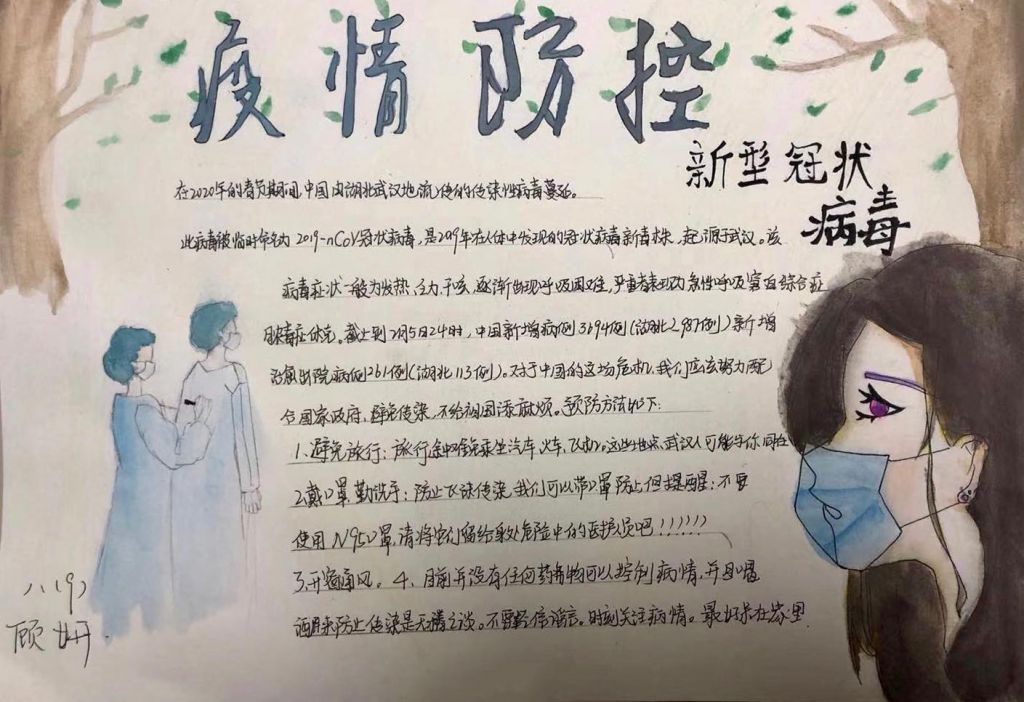 疫情防控
新型冠状
病毒
在2020年的春节期间,中国由湖北武汉地流传的传染性病毒蔓延。
此病毒被临时命名为2019-nCoV冠状病毒,是2019年在人体中发现的冠状病毒新毒株,起源于武汉。该
病毒症状一般为发热,乏力,干咳,逐渐出现呼吸困难,严重者表现为急性呼吸窘迫综合症
脓毒症休克。截止到2月5日24时,中国新增病例3694例(湖北2987例)新增
治愈出院病例261例(湖北113例)。对于中国的这场危机,我们应该努力配
合国家政府,避免传染,不给祖国添麻烦。预防方法如下:
1、避免旅行:旅行途中难免乘坐汽车,火车,飞机,这些地点,武汉人可能与你同在
2、戴口罩勤洗手:防止飞沫传染,我们可以带口罩防止但提醒:不要
使用N95口罩,请将它们留给身处危险中的医护人员吧!!!!!!
3、开窗通风。4、目前并没有任何药物可以控制病情,并且喝
酒来防止传染是无稽之谈。不要轻信谣言。时刻关注病情。最好呆在家里
八(9)
顾妍